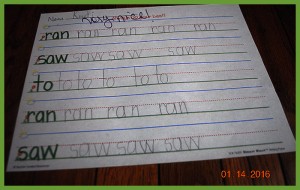 Name
very nice!
ran ran ran ran ran
saw saw saw saw
to to to to to to
ran ran ran ran
saw saw saw saw
01 14 2016